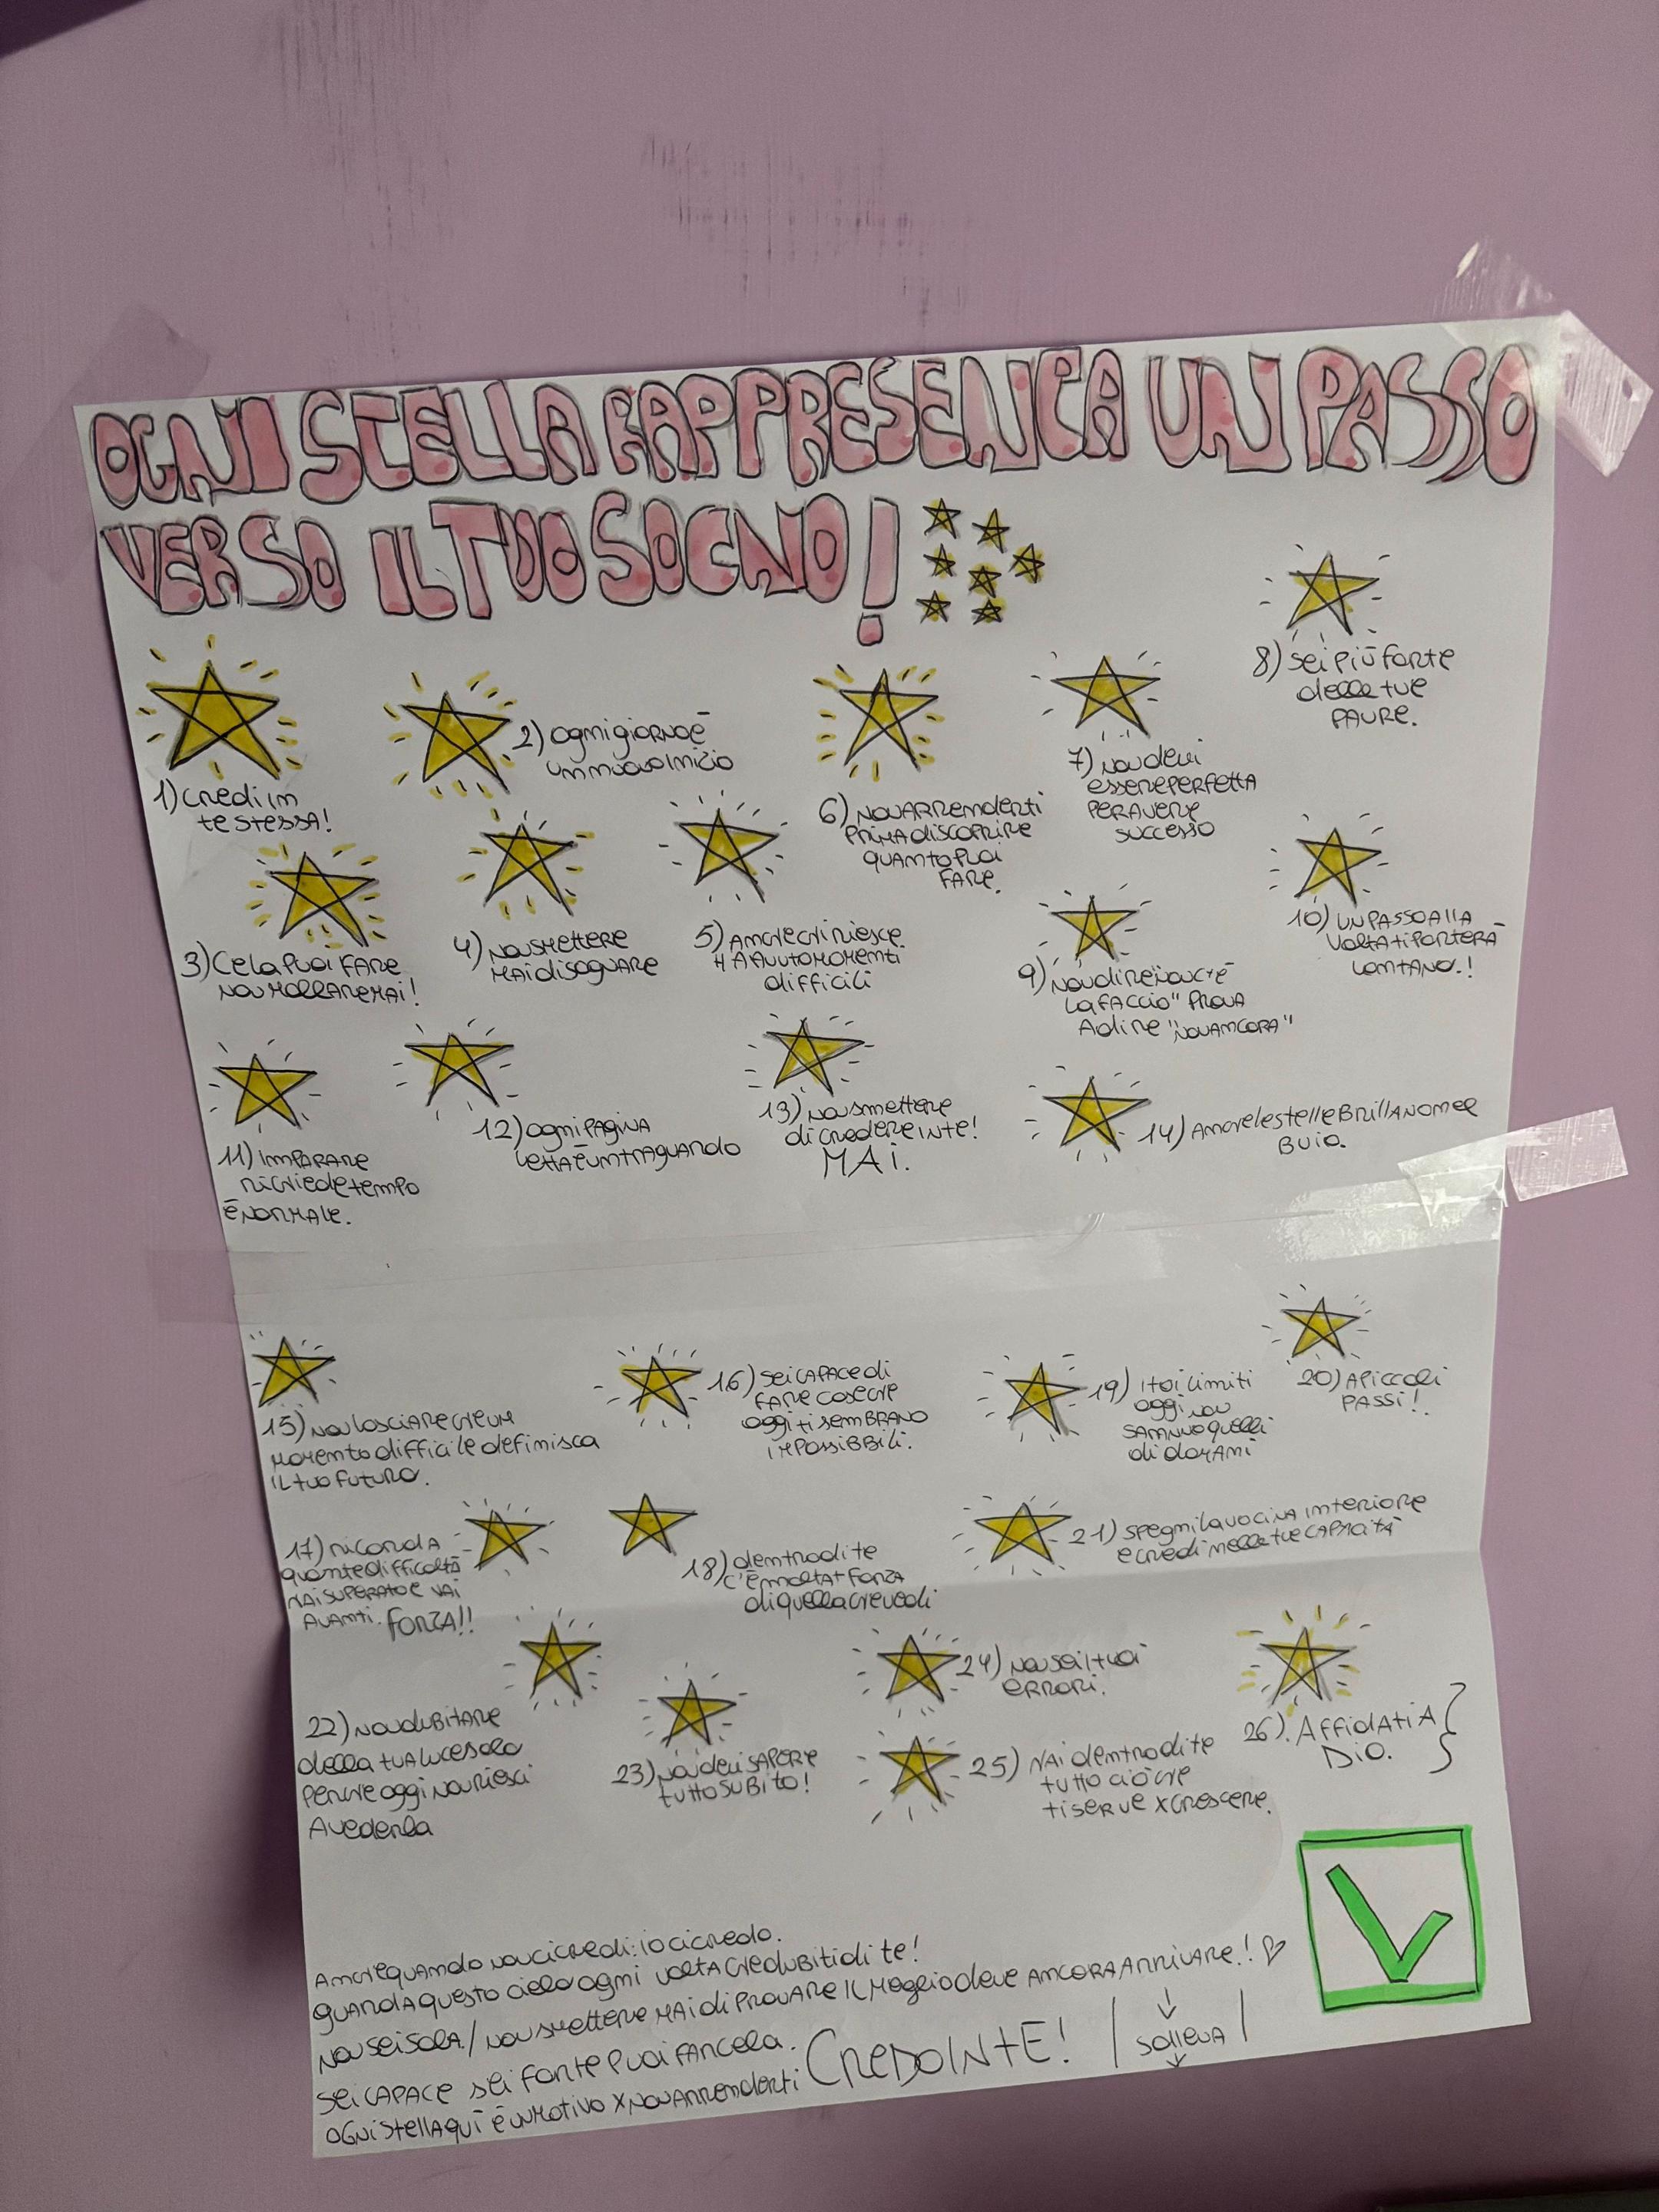 OGNI STELLA RAPPRESENTA UN PASSO
VERSO IL TUO SOGNO!
1) credi in
te stessa!
2) ogni giorno è
un nuovo inizio
3) ce la puoi fare
non mollare mai!
4) non smettere
mai di sognare
5) Anche chi riesce
HA AVUTO MOMENTI
difficili
6) NON ARRENDERTI
PRIMA di SCOPRIRE
QUANTO PUOI
FARE.
7) non devi
essere perfetta
PER AVERE
SUCCESSO
8) sei più forte
delle tue
PAURE.
9) non dire "non ce
la faccio" PROVA
A dire "non ancora"
10) UN PASSO ALLA
VOLTA ti PORTERÀ
LONTANO.!
11) IMPARARE
richiede tempo
È NORMALE.
12) ogni PAGINA
letta è un traguardo
13) non smettere
di credere in te!
MAI.
14) Amore le stelle BRILLANO nel
BUIO.
15) non lasciare che un
momento difficile definisca
il tuo futuro.
16) sei CAPACE di
FARE cose che
oggi ti semBRANO
IMPOSSIBBILI.
17) ricorda
quante difficoltà
hai superato e vai
avanti. FORZA!!
18) dentro di te
c'è molta + forza
di quella che vedi
19) I tuoi limiti
oggi non
saranno quelli
di domani
20) A piccoli
PASSI!
21) spegni la vocina interiore
e credi nelle tue CAPACITÀ
22) non dubitare
della tua luce solo
perche oggi non riesci
a vederla
23) non devi SAPERE
tutto subito!
24) non sei i tuoi
errori.
25) hai dentro di te
tutto ciò che
ti serve x crescere.
26). AffidAti A
Dio.
Anche quando non ci credi: io ci credo.
guarda questo cielo ogni volta che dubiti di te!
non sei sola. / non smettere mai di provare il meglio deve ancora arrivare.!
sei capace sei forte puoi farcela.
CREDO IN TE!
solleva
ogni stella qui è un motivo x non arrenderti